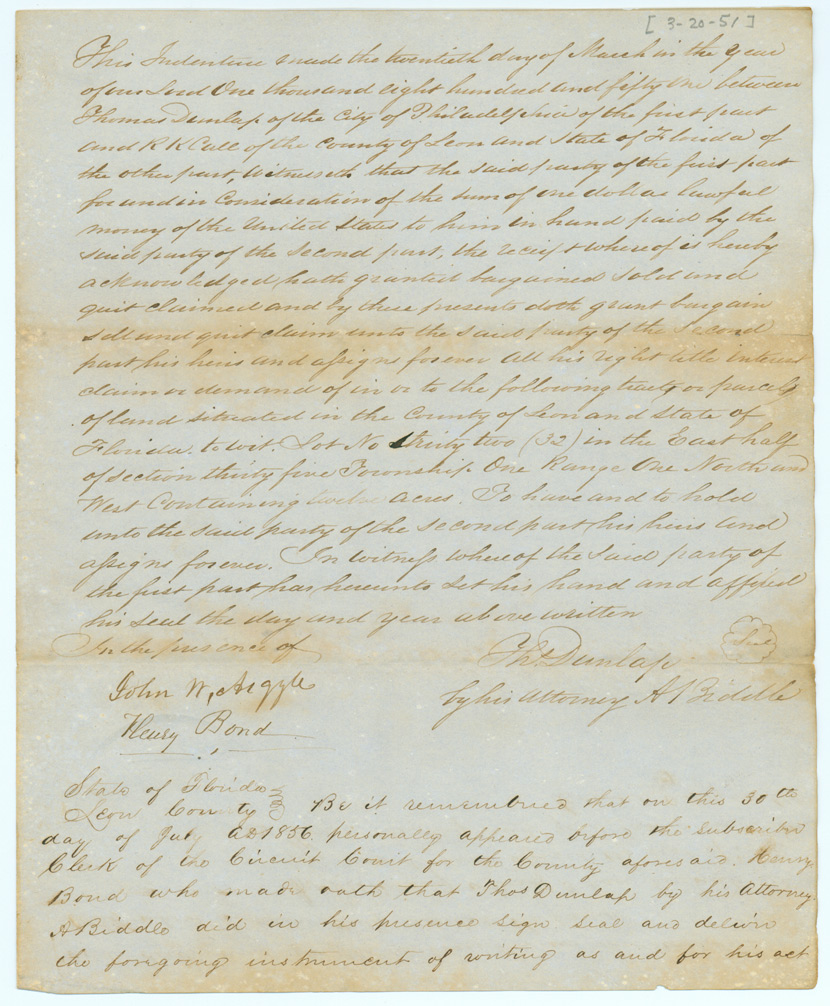 [3-20-51]
This Indenture made the twentieth day of March in the Year
of our Lord One thousand eight hundred and fifty one between
Thomas Dunlap of the City of Philadelphia of the first part
and R K Call of the County of Leon and State of Florida of
the other part, Witnesseth that the said party of the first part
for and in Consideration of the sum of one dollar lawful
money of the United States to him in hand paid by the
said party of the second part, the receipt whereof is hereby
acknowledged, hath granted bargained sold and
quit claimed and by these presents doth grant bargain
sell and quit claim unto the said party of the second
part his heirs and assigns forever all his right title interest
claim or demand of in or to the following tracts or parcels
of land situated in the County of Leon and State of
Florida. to wit. Lot No thirty two (32) in the East half
of section thirty five Township One Range One North and
West Containing twelve acres. To have and to hold
unto the said party of the second part his heirs and
assigns forever. In witness whereof the said party of
the first part has hereunto set his hand and affixed
his seal the day and year above written
In the presence of
Thos Dunlap Seal
by his attorney A Biddle
John W, Argyle
Henry Bond
State of Florida
Leon County Be it remembered that on this 30th
day of July AD 1856 personally appeared before the Subscriber
Clerk of the Circuit Court for the County aforesaid. Henry
Bond who made oath that Thos Dunlap by his Attorney
A Biddle did in his presence sign seal and deliver
the foregoing instrument of writing as and for his act